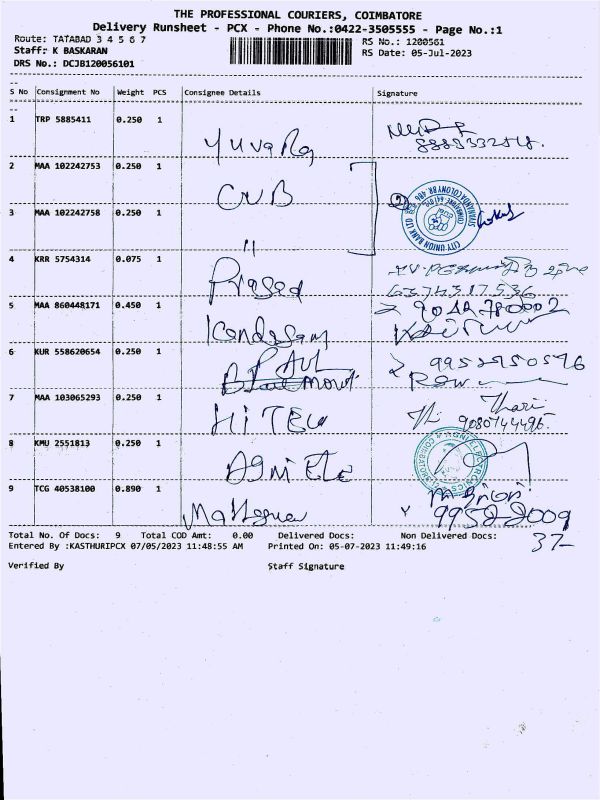 THE PROFESSIONAL COURIERS, COIMBATORE
Delivery Runsheet - PCX - Phone No.:0422-3505555 - Page No.:1
Route: TATABAD 3 4 5 6 7
RS No.: 1200561
Staff: K BASKARAN
RS Date: 05-Jul-2023
DRS No.: DCJB120056101
S No Consignment No Weight PCS Consignee Details Signature
1 TRP 5885411 0.250 1
2 MAA 102242753 0.250 1 CUB
3 MAA 102242758 0.250 1 "
CITY UNION BANK LTD
4 KRR 5754314 0.075 1 Prasad
5 MAA 860448171 0.450 1
6 KUR 558620654 0.250 1 PAUL
9952950596
7 MAA 103065293 0.250 1 HiTEU
Thari
9080744496
8 KMU 2551813 0.250 1 AGNi ELE
9 TCG 40538100 0.890 1
Total No. Of Docs: 9 Total COD Amt: 0.00 Delivered Docs: Non Delivered Docs:
37-
Entered By :KASTHURIPCX 07/05/2023 11:48:55 AM Printed On: 05-07-2023 11:49:16
Verified By Staff Signature